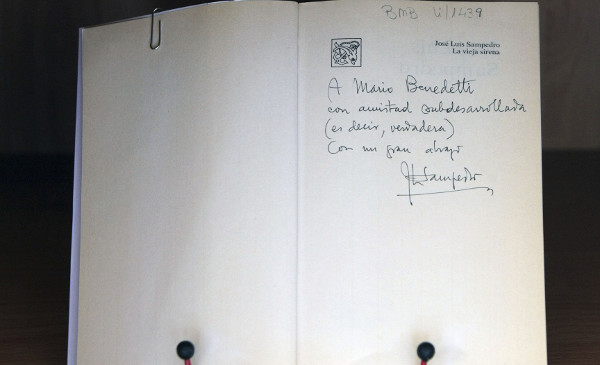 BMB Vi/1439
José Luis Sampedro
La vieja sirena
A Mario Benedetti
con amistad subdesarrollada
(es decir, verdadera)
Con un gran abrazo
JLSampedro